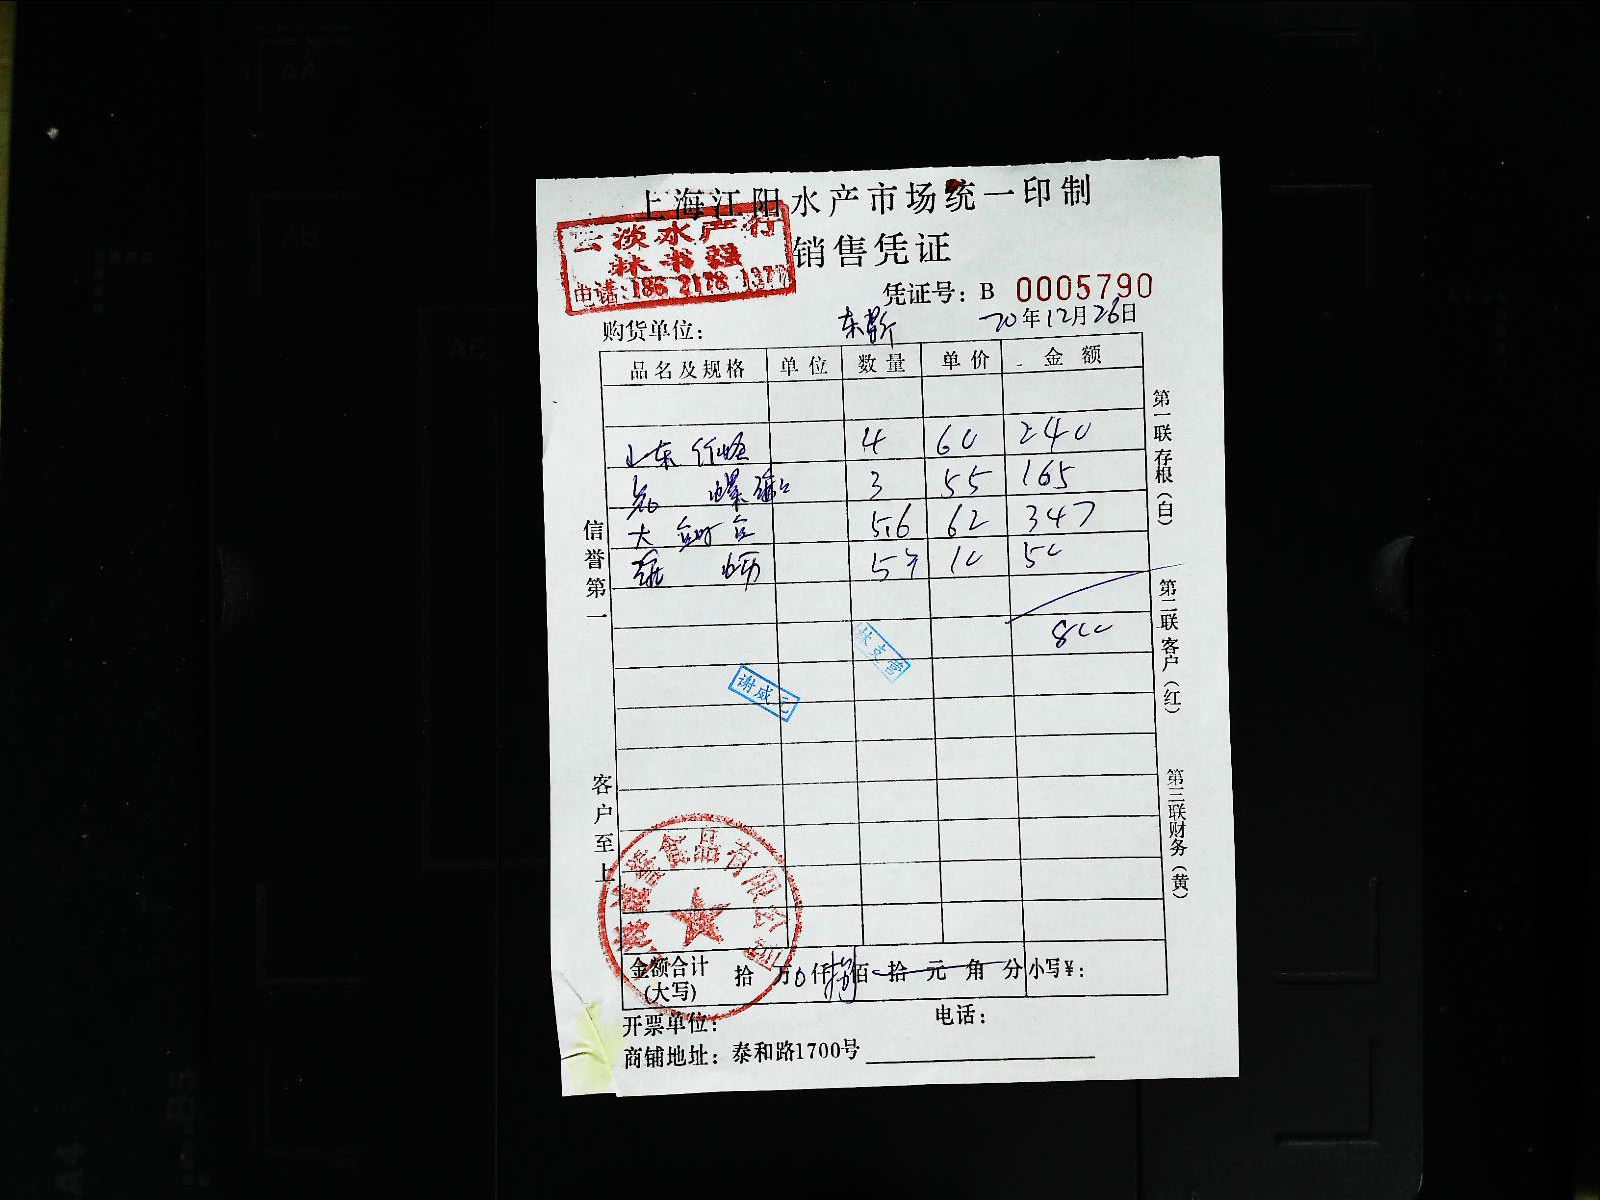 上海江阳水产市场统一印制
云淡水产行
林书强
电话:186 2178 1377
销售凭证
凭证号: B 0005790
购货单位:
20年12月26日
品名及规格 单位 数量 单价 金额
山东 4 60 240
3 55 165
大 5.6 62 347
5 10 50
800
林文雪
谢威元
信誉第一
客户至上
第一联存根(白)
第二联客户(红)
第三联财务(黄)
食品有限公司
金额合计(大写) 拾 万 0 仟 捌 佰 拾 元 角 分 小写¥:
开票单位: 电话:
商铺地址: 泰和路1700号
A4
A5
A6
B5
A4